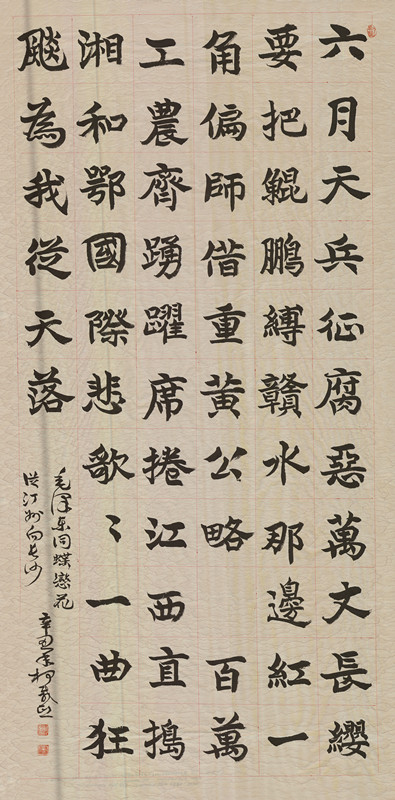 六月天兵征腐惡萬丈長纓
要把鯤鵬縛贛水那邊紅一
角偏師借重黃公略 百萬
工農齊踴躍席捲江西直搗
湘和鄂國際悲歌〻一曲狂
飈為我從天落
毛澤東詞蝶戀花
從汀州向長沙
辛丑年